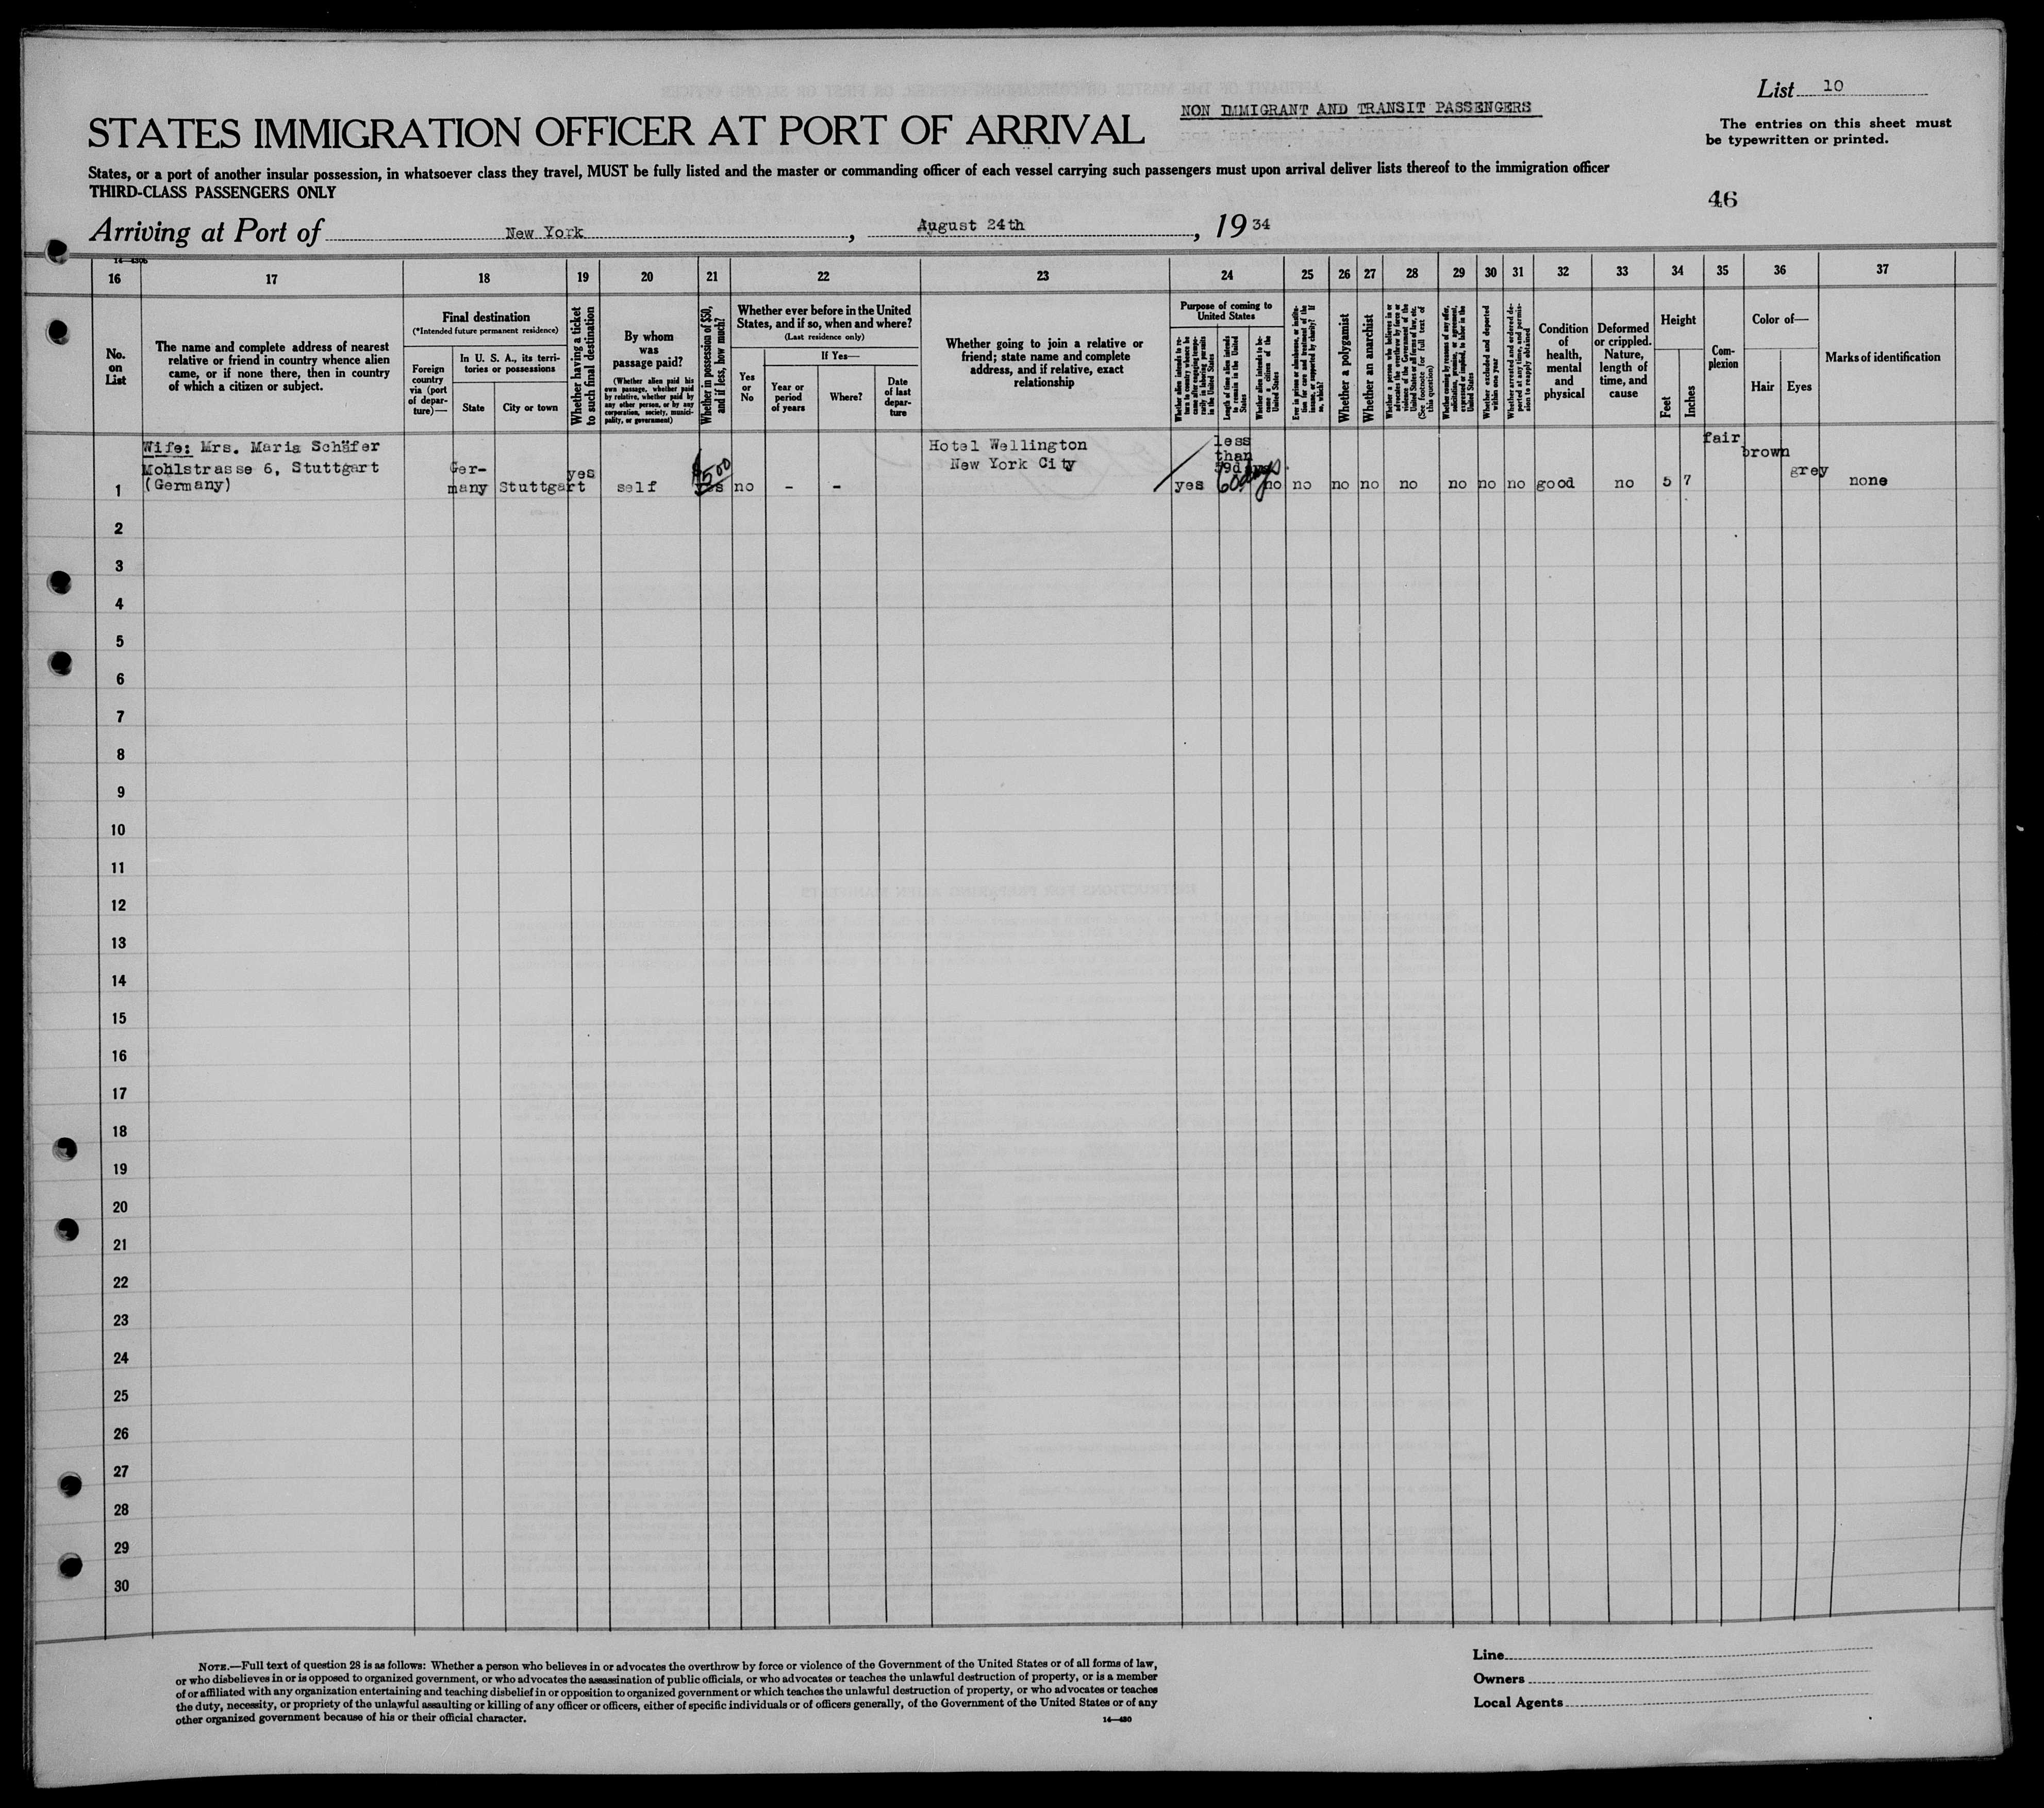 List 10
NON IMMIGRANT AND TRANSIT PASSENGERS
STATES IMMIGRATION OFFICER AT PORT OF ARRIVAL
The entries on this sheet must
be typewritten or printed.
States, or a port of another insular possession, in whatsoever class they travel, MUST be fully listed and the master or commanding officer of each vessel carrying such passengers must upon arrival deliver lists thereof to the immigration officer
THIRD-CLASS PASSENGERS ONLY
46
Arriving at Port of New York, August 24th, 1934
16 17 18 19 20 21 22 23 24 25 26 27 28 29 30 31 32 33 34 35 36 37
No.
on
List
The name and complete address of nearest
relative or friend in country whence alien
came, or if none there, then in country
of which a citizen or subject.
Final destination
(*Intended future permanent residence)
Foreign
country
via (port
of depar-
ture)—
In U. S. A., its terri-
tories or possessions
State
City or town
Whether having a ticket
to such final destination
By whom
was
passage paid?
(Whether alien paid his
own passage, whether paid
by relative, whether paid by
any other person, or by any
corporation, society, munici-
pality, or government)
Whether in possession of $50,
and if less, how much?
Whether ever before in the United
States, and if so, when and where?
(Last residence only)
Yes
or
No
If Yes—
Year or
period
of years
Where?
Date
of last
depar-
ture
Whether going to join a relative or
friend; state name and complete
address, and if relative, exact
relationship
Purpose of coming to
United States
Whether alien intends to re-
turn to country whence he
came after engaging tempo-
rarily in laboring pursuits
in the United States
Length of time alien intends
to remain in the United
States
Whether alien intends to be-
come a citizen of the
United States
Ever in prison or almshouse, or institu-
tion for care and treatment of the
insane, or supported by charity? If
so, which?
Whether a polygamist
Whether an anarchist
Whether a person who believes in or
advocates the overthrow by force or
violence of the Government of the
United States or all forms of law, etc.
(See footnote for full text of
this question)
Whether coming by reasons of any offer,
solicitation, promise, or agreement,
expressed or implied, to labor in the
United States
Whether excluded and deported
within one year
Whether arrested and ordered de-
ported at any time, and permis-
sion to reapply obtained
Condition
of
health,
mental
and
physical
Deformed
or crippled.
Nature,
length of
time, and
cause
Height
Feet
Inches
Com-
plexion
Color of—
Hair
Eyes
Marks of identification
Wife: Mrs. Maria Schäfer
Mohlstrasse 6, Stuttgart
(Germany)
1
Ger-
many
Stuttgart
yes
self
$500
yes
no
-
-
Hotel Wellington
New York City
yes
less
than
59days
60 days
no
no
no
no
no
no
no
no
good
no
5 7
fair
brown
grey
none
2
3
4
5
6
7
8
9
10
11
12
13
14
15
16
17
18
19
20
21
22
23
24
25
26
27
28
29
30
NOTE.—Full text of question 28 is as follows: Whether a person who believes in or advocates the overthrow by force or violence of the Government of the United States or of all forms of law,
or who disbelieves in or is opposed to organized government, or who advocates the assassination of public officials, or who advocates or teaches the unlawful destruction of property, or is a member
of or affiliated with any organization entertaining and teaching disbelief in or opposition to organized government or which teaches the unlawful destruction of property, or who advocates or teaches
the duty, necessity, or propriety of the unlawful assaulting or killing of any officer or officers, either of specific individuals or of officers generally, of the Government of the United States or of any
other organized government because of his or their official character.
14—430
Line
Owners
Local Agents